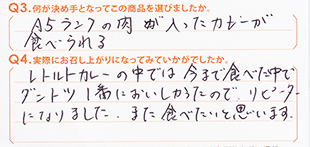 Q3.何が決め手となってこの商品を選びましたか。
A5ランクの肉が入ったカレーが
食べられる
Q4.実際にお召し上がりになってみていかがでしたか。
レトルトカレーの中では今まで食べた中で
ダントツ1番においしかったので、リピーター
になりました。また食べたいと思います。